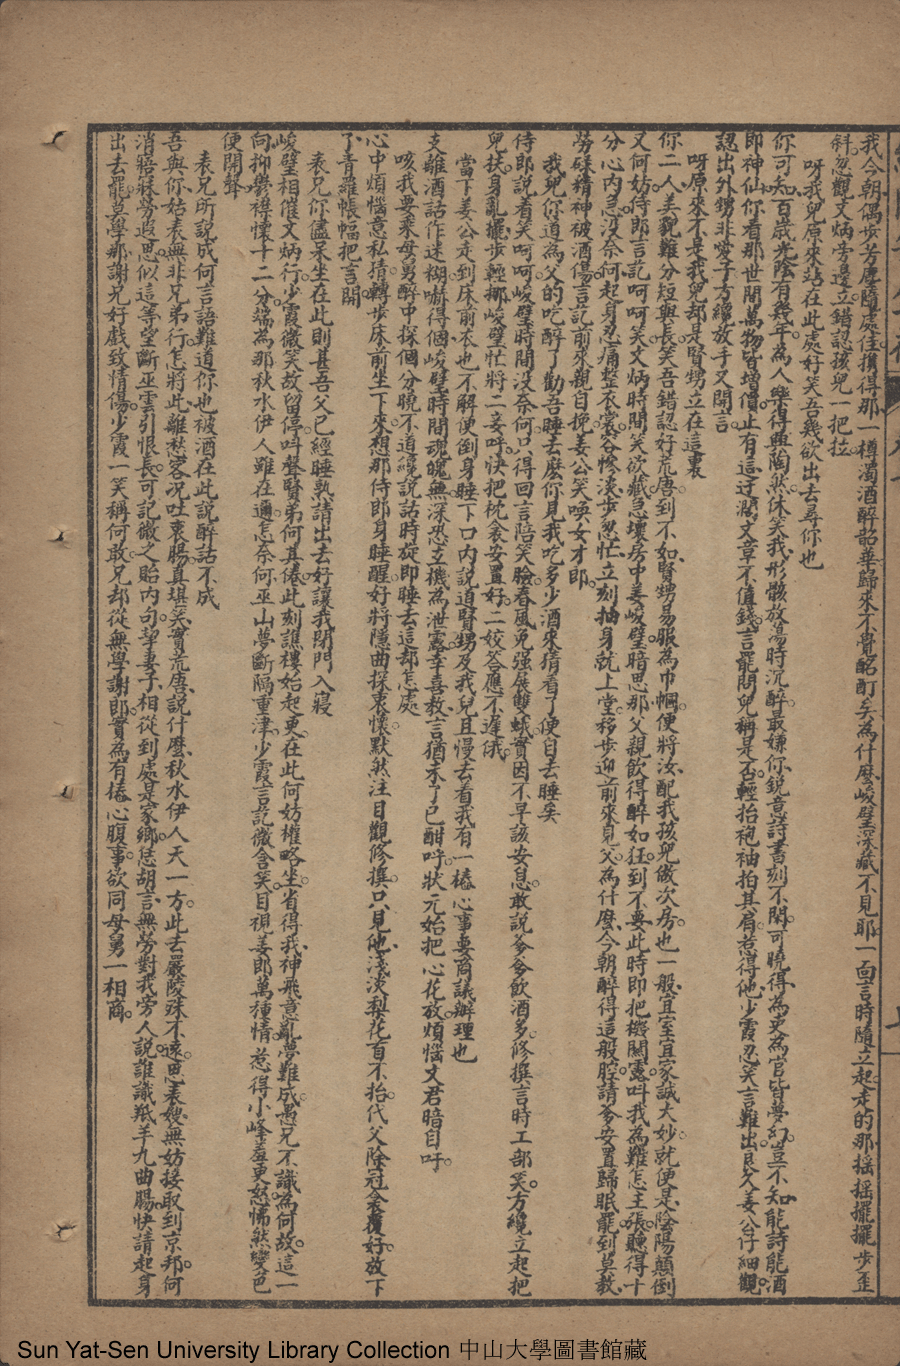 我今朝偶步芳塵隨處佳攜得那一樽濁酒醉韶華歸來不覺酩酊矣為什麼峻璧深藏不見耶一面言時隨立起走的那摇摇擺擺步歪
斜忽觀文炳旁邊立錯認孩兒一把拉
呀我兒原來站在此處好笑吾幾欲出去尋你也
你可知百歲光陰有幾年為人樂得興陶然休笑我形骸放蕩時沉醉最嫌你銳意詩書刻不閑可曉得為吏為官皆夢幻豈不知能詩能酒
即神仙你看那世間萬物皆增價止有這迂濶文章不值錢言罷問兒稱是否輕抬袍袖拍其肩惹得他少霞忍笑言難出良久姜公仔細觀
認出外甥非愛子方纔放手又開言
呀原來不是我兒却是賢甥立在這裏
你二人美貌難分短與長笑吾錯認好荒唐到不如賢甥易服為巾幗便將汝配我孩兒做次房也一般宜室宜家誠大妙就便是陰陽顛倒
又何妨侍郎言記呵呵笑文炳時間笑欲藏急壞房中姜峻璧暗思那父親飲得醉如狂到不要此時即把機關露叫我為難怎主張聽得十
分心內急没奈何起身忍痛整衣裳容慘淡步忽忙立刻抽身就上堂移步迎前來見父為什麼今朝醉得這般腔請爹安置歸眠罷到莫教
勞碌精神被酒傷言記前來親自挽姜公笑喚女才郎
我兒你道為父的吃醉了勸吾睡去麽你見我吃多少酒來猜看了便自去睡矣
侍郎說着笑呵呵峻璧時間没奈何只得回言陪笑臉春風免强展雙蛾實因不早該安息敢說爹爹飲酒多修撰言時工部笑方纔立起把
兒扶身亂擺步輕挪峻璧忙將二妾呼快把枕衾安置好二姣答應不遲俄
當下姜公走到床前衣也不解便倒身睡下口內說道賢甥及我兒且慢去看我有一樁心事要商議辦理也
支離酒話作迷糊嚇得個峻璧時間魂魄無深恐立機為泄露幸喜教言猶未了已酣呼狀元始把心花放煩惱文君暗自吁
咳我要乘母舅醉中探個分曉不道纔說話時旋即睡去這却怎處
心中煩惱意私猜轉步床前坐下來想那侍郎身睡醒好將隱曲探衷懷默然注目觀修撰只見他淺淡梨花首不抬代父除冠衾覆好放下
了青羅帳幅把言開
表兄你儘呆坐在此則甚吾父已經睡熟請出去好讓我閉門入寢
峻璧相催文炳行少霞微笑故留停呌聲賢弟何其倦此刻譙樓始起更在此何妨權略坐省得我神飛意亂夢難成愚兄不識為何故這一
向抑欝襟懷十二分端為那秋水伊人雖在邇怎奈何巫山夢斷隔重津少霞言記微含笑目視姜郎萬種情惹得小峰羞更怒怫然變色
便開聲
表兄所說成何言語難道你也被酒在此說醉話不成
吾與你姑表無非兄弟行怎將此離愁客况吐衷腸真堪笑實荒唐說什麼秋水伊人天一方此去嚴陵殊不遠思表嫂無妨接取到京邦何
消寤寐勞遐思似這等望斷巫雲引恨長可記微之貽內句挈妻子相從到處是家鄉恁胡言無勞對我旁人說誰識羝羊九曲腸快請起身
出去罷莫學那謝兄好戲致情傷少霞一笑稱何敢兄却從無學謝郎實為有樁心腹事欲同母舅一相商
Sun Yat-Sen University Library Collection 中山大學圖書館藏